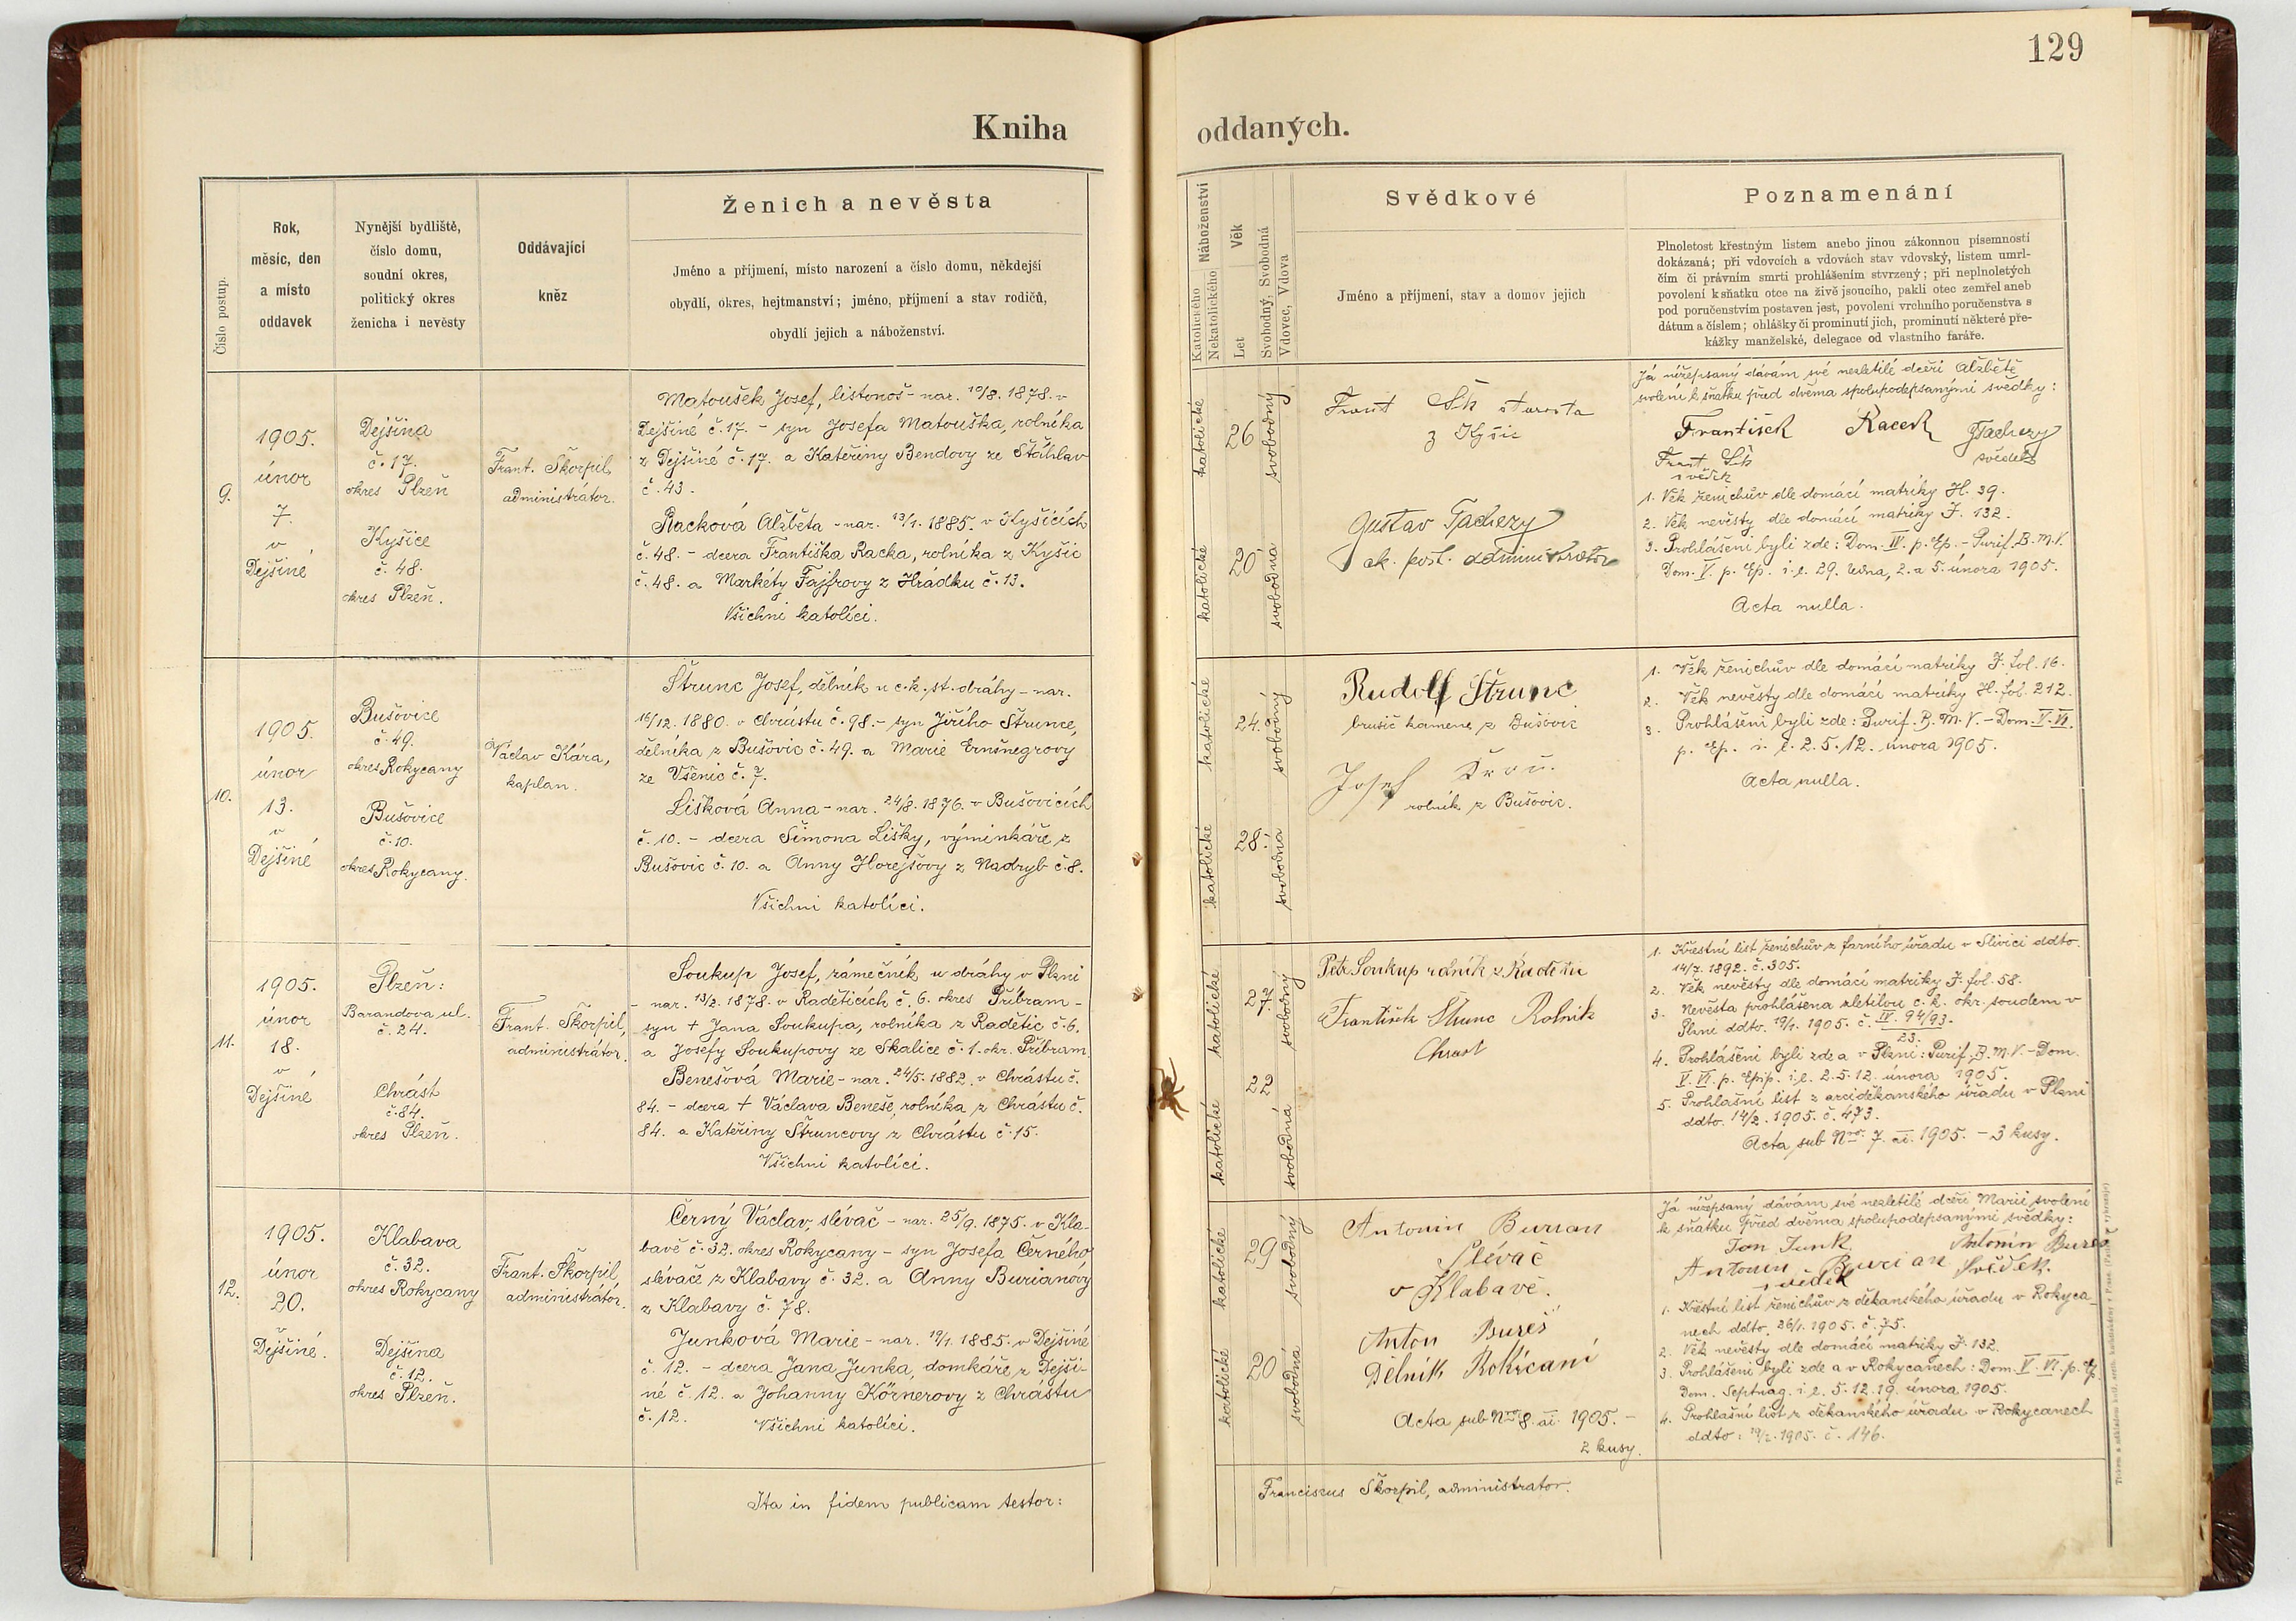 129
Kniha oddaných.
Číslo postup.
Rok,
měsíc, den
a místo
oddavek
Nynější bydliště,
číslo domu,
soudní okres,
politický okres
ženicha i nevěsty
Oddávající
kněz
Ženich a nevěsta
Jméno a příjmení, místo narození a číslo domu, někdejší
obydlí, okres, hejtmanství; jméno, příjmení a stav rodičů,
obydlí jejich a náboženství.
Náboženství
Katolického
Nekatolického
Věk
Let
Svobodný, Svobodná
Vdovec, Vdova
Svědkové
Jméno a příjmení, stav a domov jejich
Poznamenání
Plnoletost křestným listem anebo jinou zákonnou písemností
dokázaná; při vdovcích a vdovách stav vdovský, listem umrl-
čím či právním smrti prohlášením stvrzený; při neplnoletých
povolení k sňatku otce na živě jsoucího, pakli otec zemřel aneb
pod poručenstvím postaven jest, povolení vrchního poručenstva s
dátum a číslem; ohlášky či prominutí jich, prominutí některé pře-
kážky manželské, delegace od vlastního faráře.
9.
1905.
únor
7.
v
Dejšině
Dejšina
č. 17.
okres Plzeň
Kyšice
č. 48.
okres Plzeň.
Frant. Škorpil,
administrátor.
Matoušek Josef, listonoš - nar. 10/8. 1878. v
Dejšině č. 17. - syn Josefa Matouška, rolníka
z Dejšině č. 17. a Kateřiny Bendovy ze Šťáhlav
č. 43.
Racková Alžběta - nar. 13/1. 1885. v Kyšicích
č. 48. - dcera Františka Racka, rolníka z Kyšic
č. 48. a Markéty Fajfrovy z Hrádku č. 13.
Všichni katolíci.
katolické
26
svobodný
katolické
20
svobodná
Frant Šk starosta
z Kyšic
Gustav Tachezy
ak. post. administrator
Já nížepsaný dávám své nezletilé dceři Alžbětě
svolení k sňatku před dvěma spolupodepsanými svědky:
František Racek Tachezy
svědek
Frant Šk
svědek
1. Věk ženichův dle domácí matriky H. 39.
2. Věk nevěsty dle domácí matriky J. 132.
3. Prohlášeni byli zde: Dom. IV. p. Ep. - Purif. B. M. V.
Dom. V. p. Ep. i. e. 29. ledna, 2. a 5. února 1905.
Acta nulla.
10.
1905.
únor
13.
v
Dejšině
Bušovice
č. 49.
okres Rokycany
Bušovice
č. 10.
okres Rokycany.
Václav Kára,
kaplan.
Štrunc Josef, dělník u c. k. st. dráhy - nar.
16/12. 1880. v Chrástu č. 98. - syn Jiřího Štrunce,
dělníka z Bušovic č. 49. a Marie Ernšnegrovy
ze Všenic č. 7.
Lišková Anna - nar. 24/8. 1876. v Bušovicích
č. 10. - dcera Šimona Lišky, výminkáře z
Bušovic č. 10. a Anny Horejšovy z Nadryb č. 8.
Všichni katolíci.
katolické
24.
svobodný
katolické
28.
svobodná
Rudolf Štrunc
brusič kamene z Bušovic
Josef
rolník z Bušovic.
1. Věk ženichův dle domácí matriky J. fol. 16.
2. Věk nevěsty dle domácí matriky H. fol. 212.
3. Prohlášeni byli zde: Purif. B. M. V. - Dom. V. VI.
p. Ep. i. e. 2. 5. 12. února 1905.
Acta nulla.
11.
1905.
únor
18.
v
Dejšině
Plzeň:
Barandova ul.
č. 24.
Chrást
č. 84.
okres Plzeň.
Frant. Škorpil,
administrátor.
Soukup Josef, zámečník u dráhy v Plzni
- nar. 13/2. 1878. v Raděticích č. 6. okres Příbram -
syn + Jana Soukupa, rolníka z Radětic č. 6.
a Josefy Soukupovy ze Skalice č. 1. okr. Příbram.
Benešová Marie - nar. 24/5. 1882. v Chrástu č.
84. - dcera + Václava Beneše, rolníka z Chrástu č.
84. a Kateřiny Štruncovy z Chrástu č. 15.
Všichni katolíci.
katolické
27.
svobodný
katolické
22
svobodná
Petr Soukup rolník z
František Štrunc Rolník
Chrast
1. Křestní list ženichův z farního úřadu v Slivici ddto.
14/7. 1892. č. 305.
2. Věk nevěsty dle domácí matriky J. fol. 58.
3. Nevěsta prohlášena zletilou c. k. okr. soudem v
Plzni ddto. 19/1. 1905. č. IV. 94/93.
23.
4. Prohlášeni byli zde a v Plzni: Purif. B. M. V. - Dom.
V. VI. p. Epip. i. e. 2. 5. 12. února 1905.
5. Prohlašní list z arciděkanského úřadu v Plzni
ddto. 14/2. 1905. č. 473.
Acta sub Nro. 7. ai. 1905. - 3 kusy.
12.
1905.
únor
20.
v
Dejšině.
Klabava
č. 32.
okres Rokycany
Dejšina
č. 12.
okres Plzeň.
Frant. Škorpil,
administrátor.
Černý Václav, slévač - nar. 25/9. 1875. v Kla-
bavě č. 32. okres Rokycany - syn Josefa Černého
slévače z Klabavy č. 32. a Anny Burianovy
z Klabavy č. 78.
Junková Marie - nar. 19/1. 1885. v Dejšině
č. 12. - dcera Jana Junka, domkáře z Dejši-
ně č. 12. a Johanny Körnerovy z Chrástu
č. 12.
Všichni katolíci.
katolické
29
svobodný
katolické
20
svobodná
Antonin Burian
Slévač
v Klabavě.
Anton Bureš
Dělnik Rokicani
Acta sub Nro 8. ai. 1905. -
2 kusy.
Já nížepsaný dávám své nezletilé dceři Marii svolení
k sňatku před dvěma spolupodepsanými svědky:
Jan Junk Antonín Bureš
Antonin Burian Svědek.
svědek
1. Křestní list ženichův z děkanského úřadu v Rokyca-
nech ddto. 26/1. 1905. č. 75.
2. Věk nevěsty dle domácí matriky J. 132.
3. Prohlášeni byli zde a v Rokycanech: Dom. V. VI. p. Ep.
Dom. Septuag. i. e. 5. 12. 19. února 1905.
4. Prohlašní list z děkanského úřadu v Rokycanech
ddto: 19/2. 1905. č. 146.
Ita in fidem publicam testor:
Franciscus Škorpil, administrator.